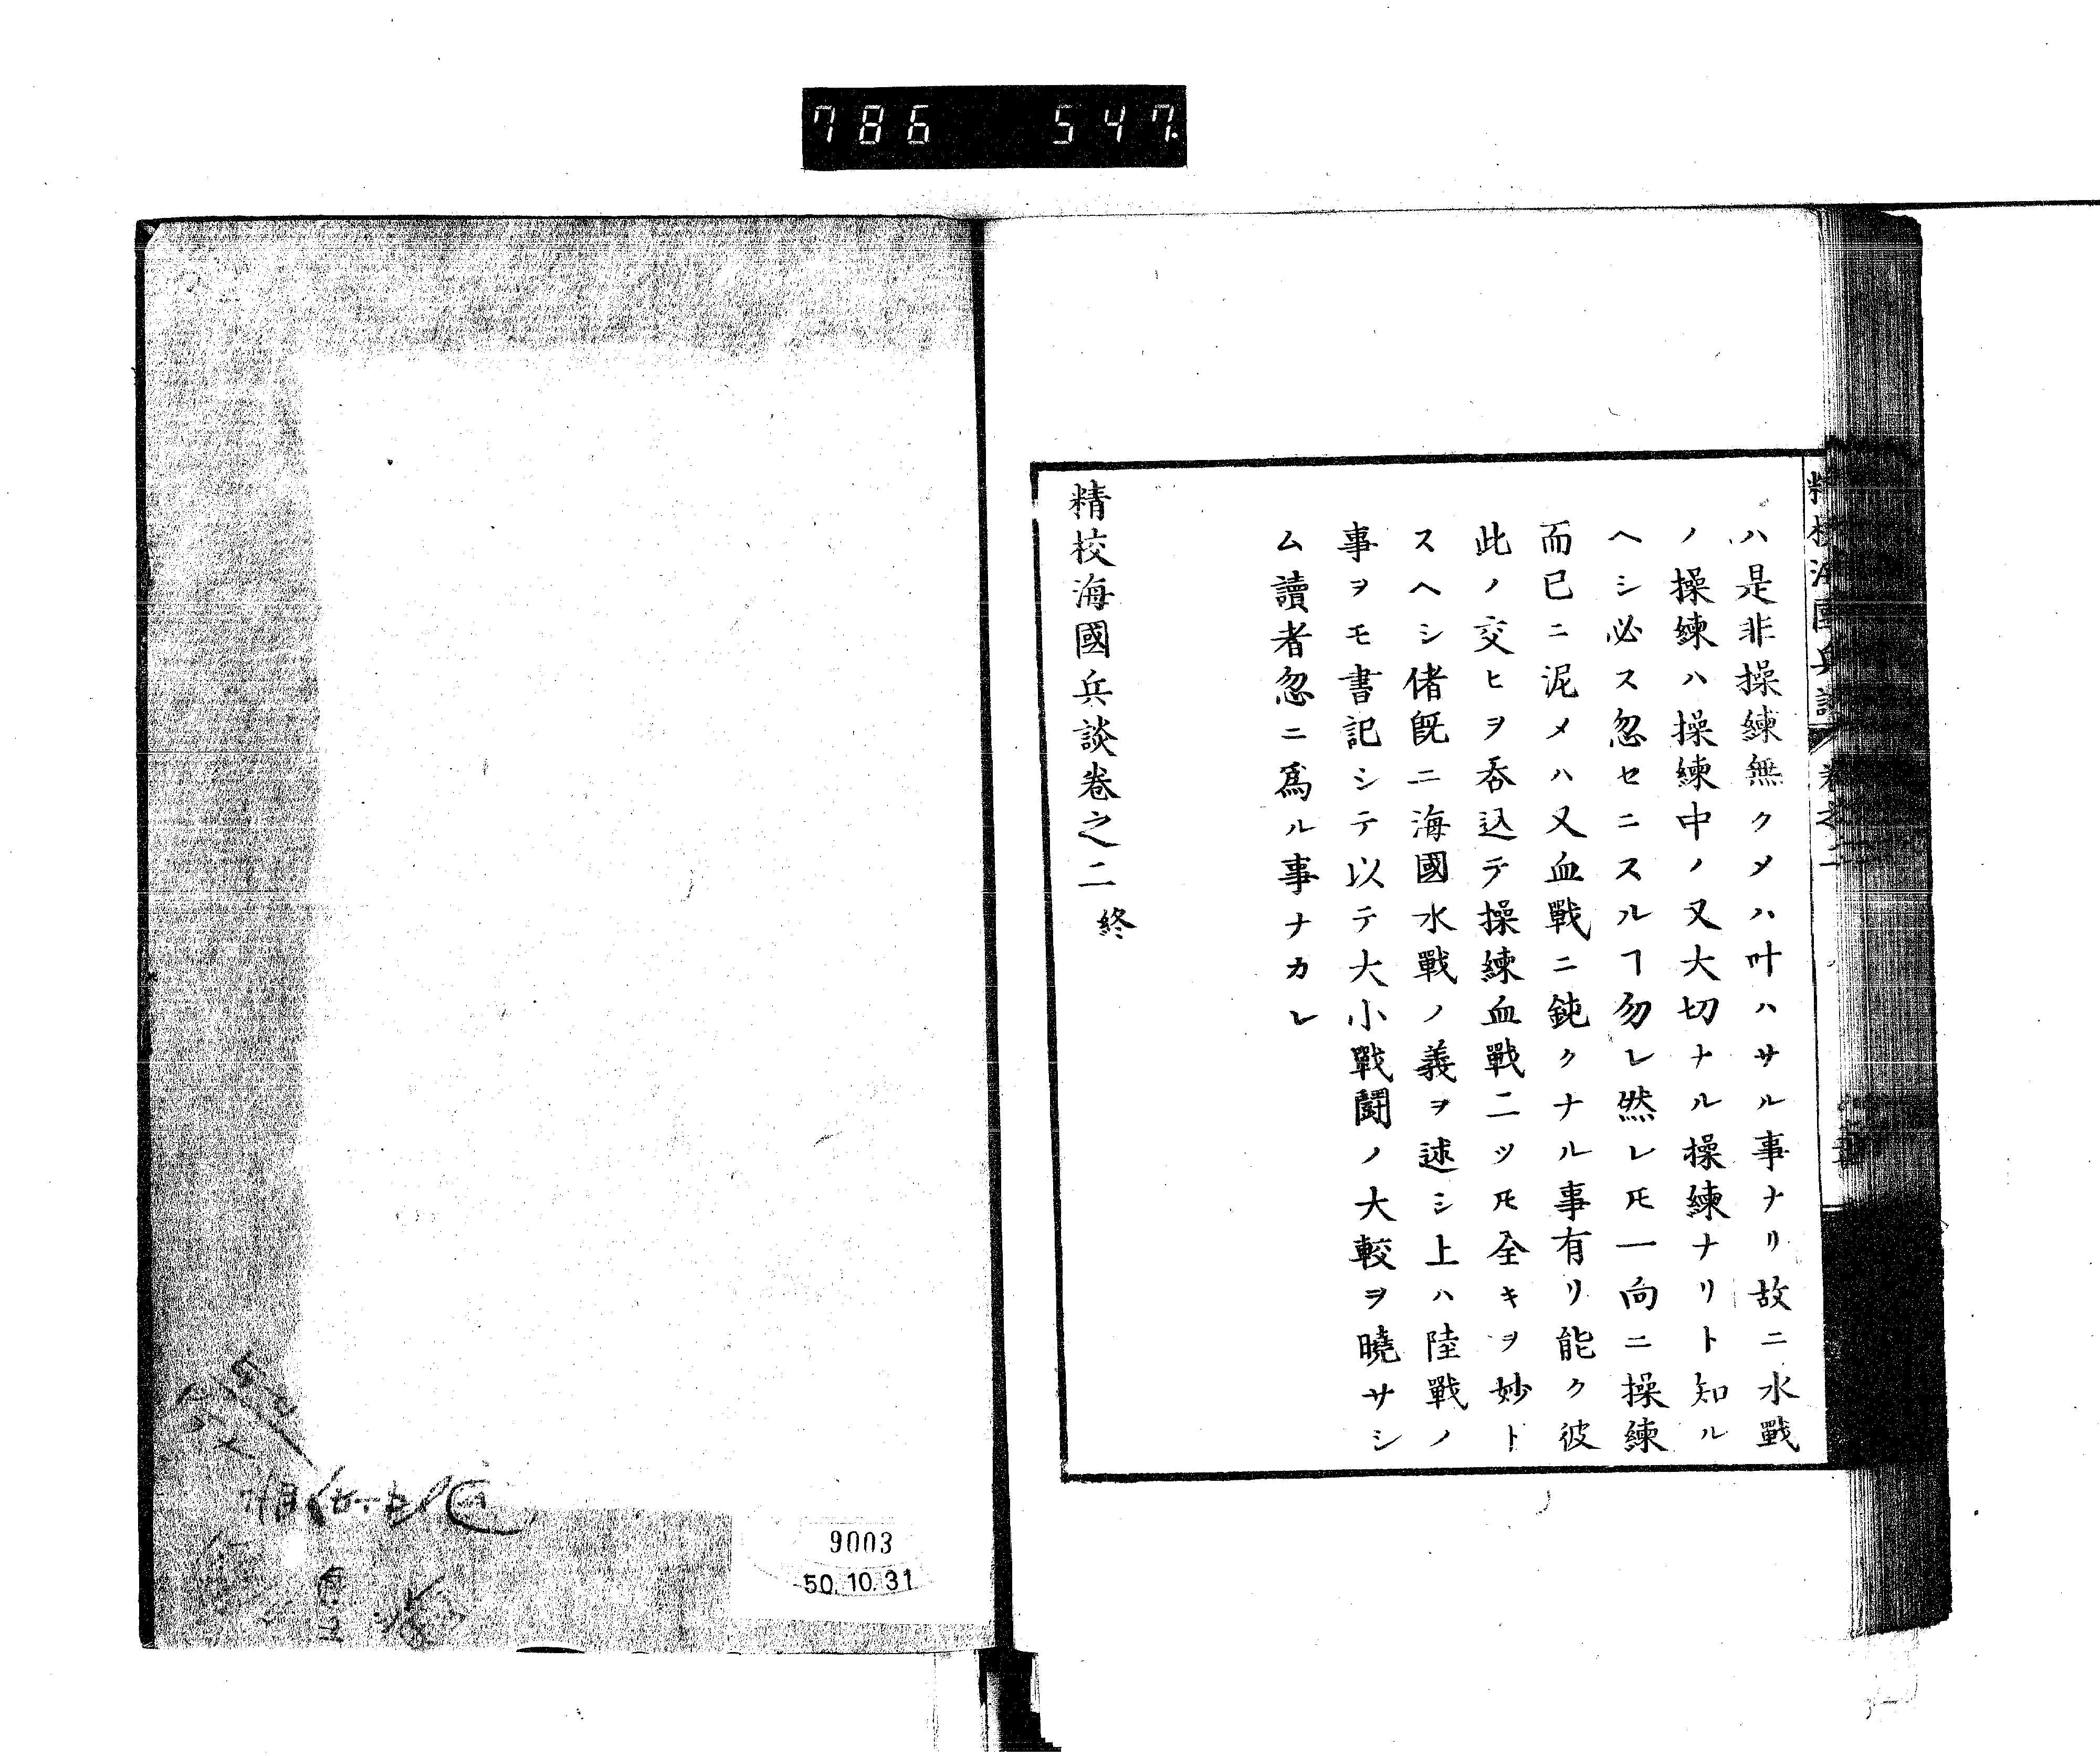 786 547.
ハ是非操練無クメハ叶ハサル事ナリ故ニ水戰
ノ操練ハ操練中ノ又大切ナル操練ナリト知ル
ヘシ必ス忽セニスルヿ勿レ然レ𪜈一向ニ操練
而已ニ泥メハ又血戰ニ鈍クナル事有リ能ク彼
此ノ交ヒヲ呑込テ操練血戰二ツ𪜈全キヲ妙ト
スヘシ偖旣ニ海國水戰ノ義ヲ述シ上ハ陸戰ノ
事ヲモ書記シテ以テ大小戰鬪ノ大較ヲ曉サシ
ム讀者忽ニ爲ル事ナカレ
精校海國兵談卷之二 終
9003
50.10.31